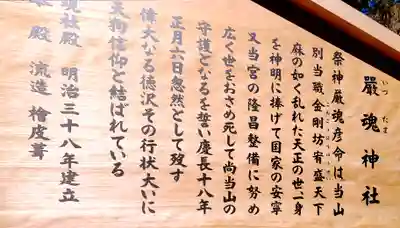 いつ たま
嚴魂神社
祭神厳魂彦命は当山
こんごうぼうゆうせい
別当職金剛坊宥盛天下
麻の如く乱れた天正の世一身
を神明に捧げて国家の安寧
又当宮の隆昌整備に努め
広く世をおさめ死して尚当山の
守護となるを誓い慶長十八年
正月六日忽然として歿す
偉大なる徳沢その行状大いに
天狗信仰と結ばれている
現社殿 明治三十八年建立
本殿 流造 檜皮葺